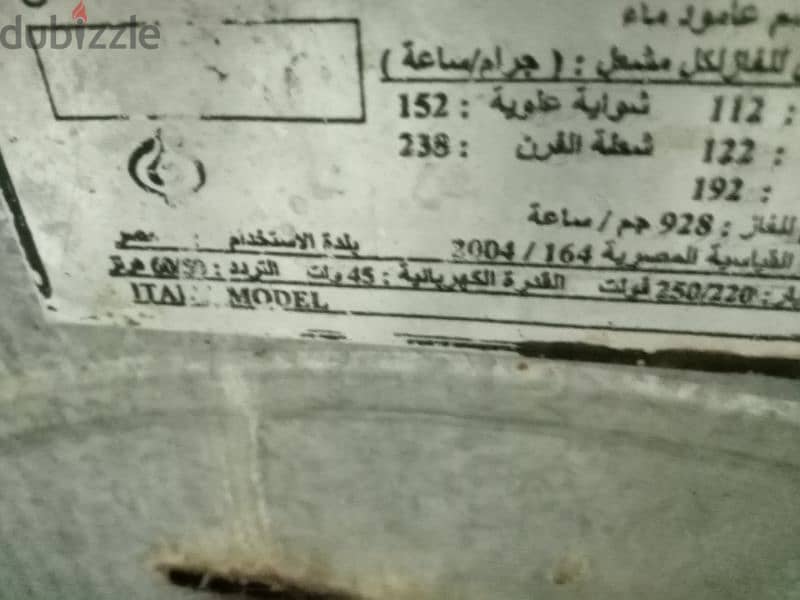 dubizzle
عامود ماء
للغاز لكل مشعل : ( جرام/ساعة )
: 112 شواية علوية : 152
: 122 شعلة الفرن : 238
: 192
للغاز : 928 جم / ساعة
القياسية المصرية 164 / 2004 بلدة الاستخدام : مصر
: 250/220 فولت القدرة الكهربائية : 45 وات التردد : 60/50 هرتز
ITAL MODEL